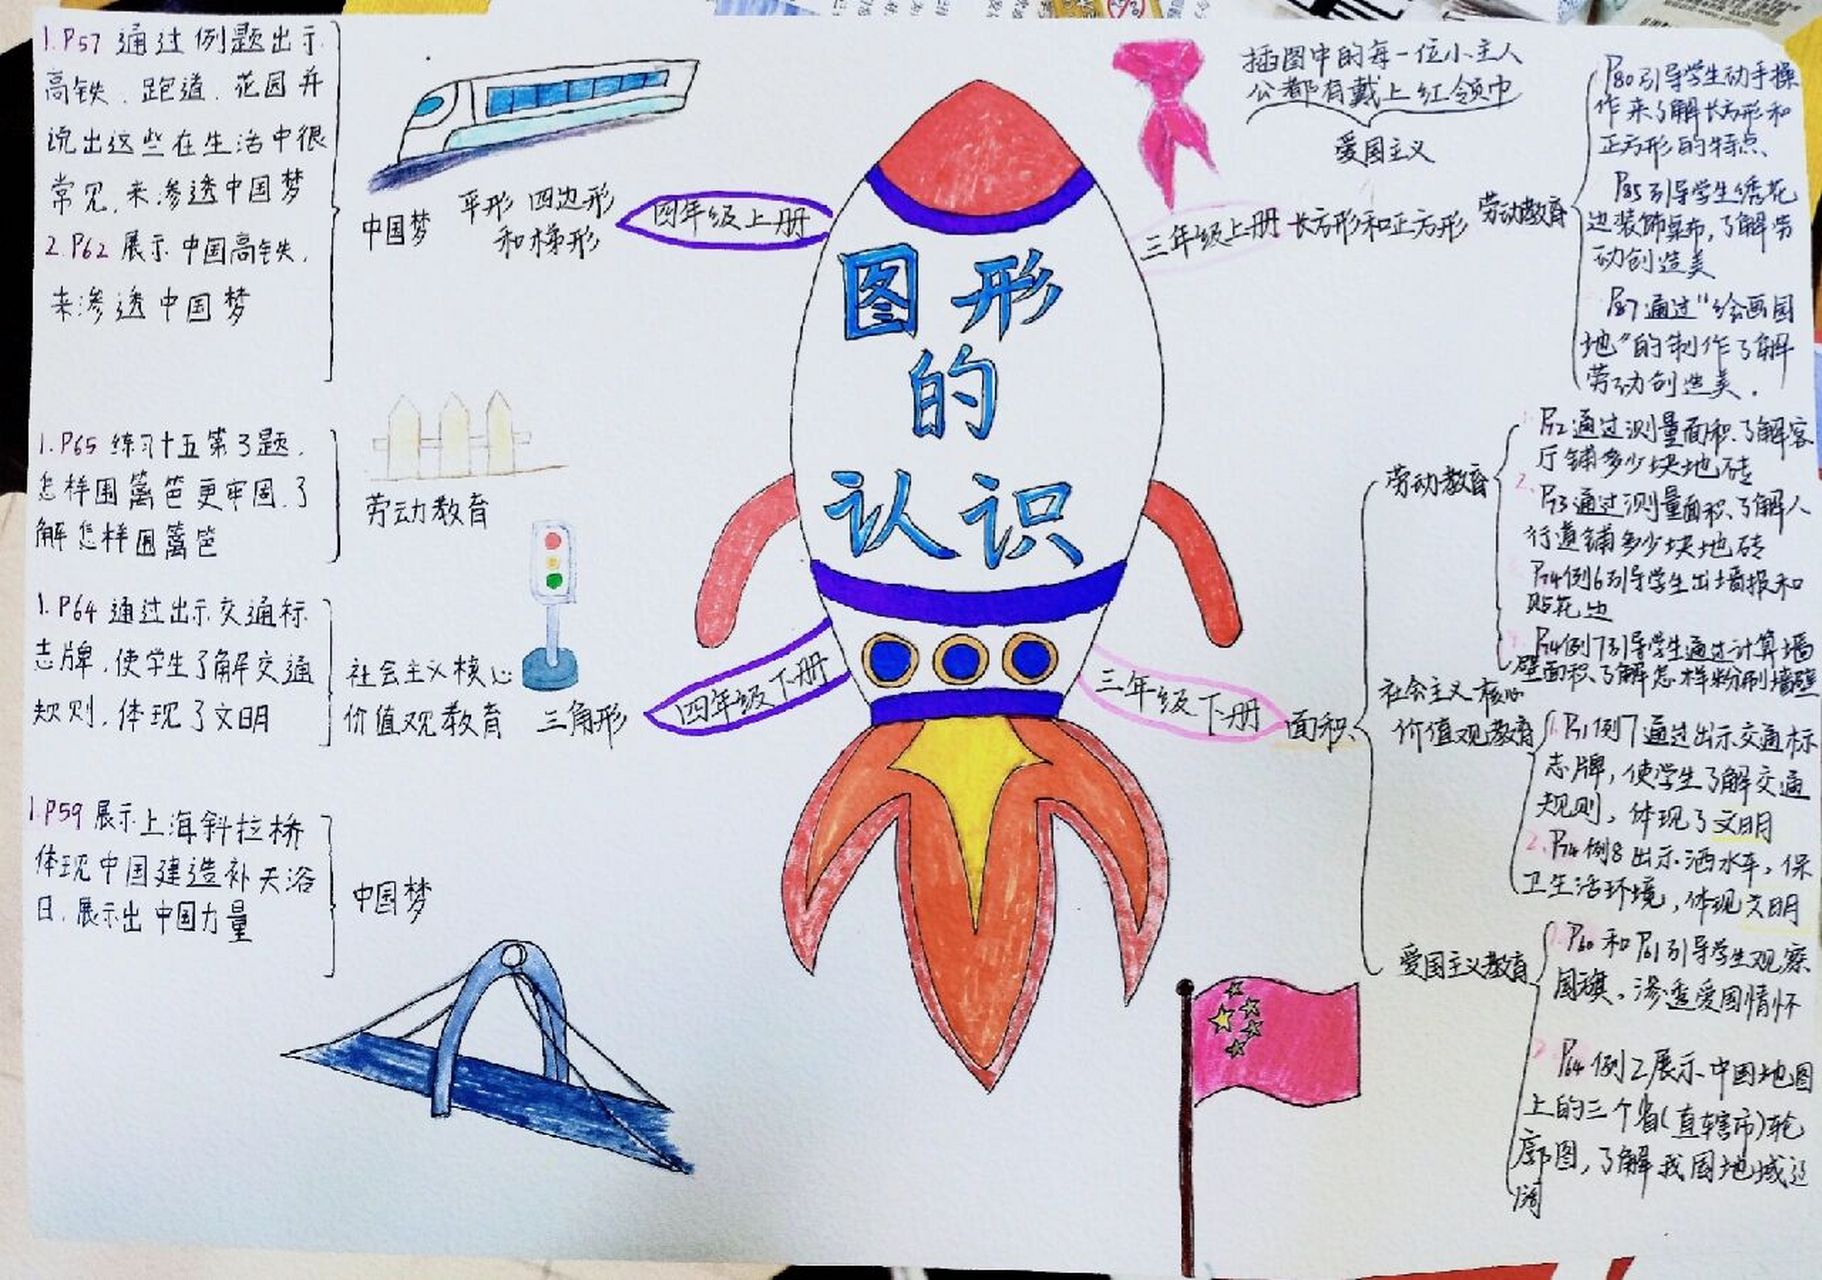 1.P57 通过例题出示
高铁、跑道、花园并
说出这些在生活中很
常见,来渗透中国梦
2.P62 展示中国高铁,
来渗透中国梦
中国梦
平形四边形
和梯形
四年级上册
1.P65 练习十五第3题,
怎样围篱笆更牢固,了
解怎样围篱笆
劳动教育
1.P64 通过出示交通标
志牌,使学生了解交通
规则,体现了文明
社会主义核心
价值观教育
三角形
四年级下册
1.P59 展示上海斜拉桥
体现中国建造补天浴
日,展示出中国力量
中国梦
图形
的
认识
插图中的每一位小主人
公都有戴上红领巾
爱国主义
三年级上册
长方形和正方形
劳动教育
P80引导学生动手操
作来了解长方形和
正方形的特点、
P85引导学生绣花
边装饰桌布,了解劳
动创造美
P87通过“绘画园
地”的制作了解
劳动创造美.
三年级下册
面积
劳动教育
P72通过测量面积,了解客
厅铺多少块地砖
2. P73通过测量面积,了解人
行道铺多少块地砖
P74例6引导学生出墙报和
贴花边
P74例7引导学生通过计算墙
壁面积,了解怎样粉刷墙壁
社会主义核心
价值观教育
1.P71例7通过出示交通标
志牌,使学生了解交通
规则,体现了文明
2.P74例8出示洒水车,保
卫生活环境,体现文明
爱国主义教育
1.P60和P61引导学生观察
国旗,渗透爱国情怀
2.P64例2展示中国地图
上的三个省(直辖市)轮
廓图,了解我国地域辽
阔